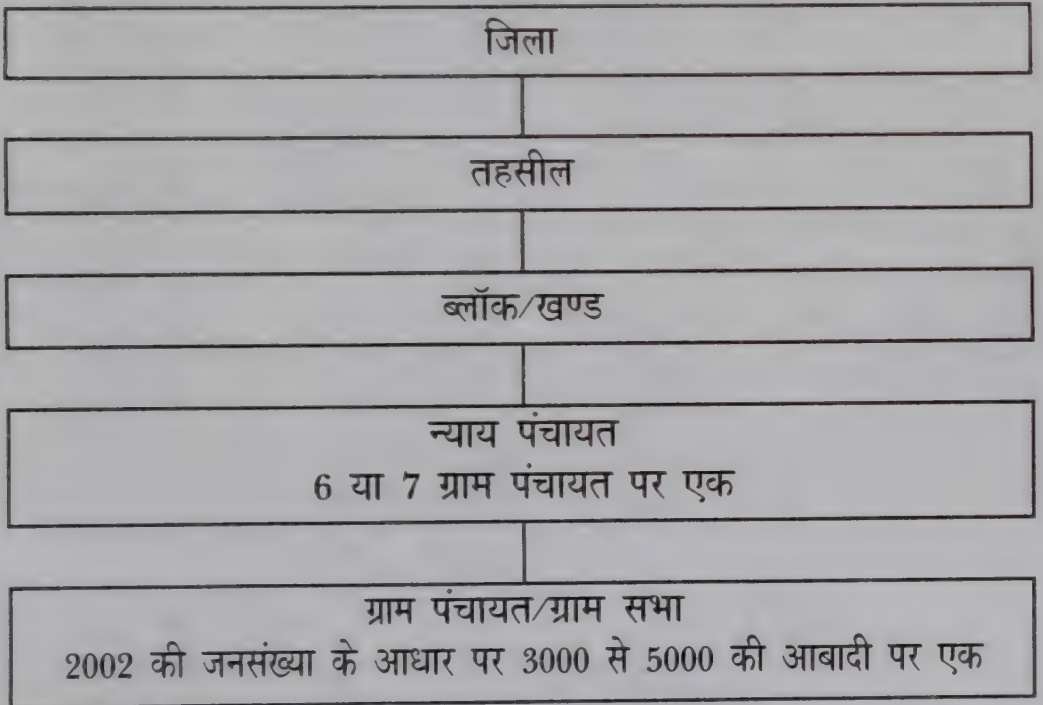 जिला
तहसील
ब्लॉक/खण्ड
न्याय पंचायत
6 या 7 ग्राम पंचायत पर एक
ग्राम पंचायत/ग्राम सभा
2002 की जनसंख्या के आधार पर 3000 से 5000 की आबादी पर एक